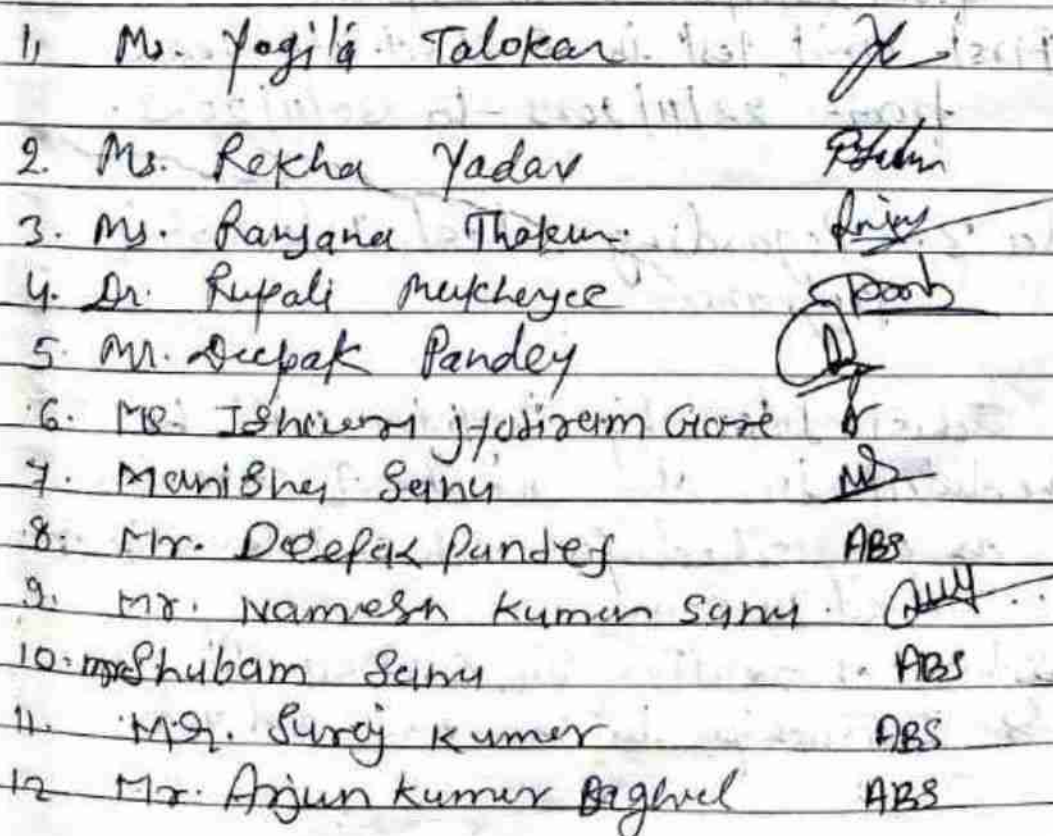 1, Ms. Yogita Talokar
2. Ms. Rekha Yadav
3. Ms. Ranjana Thakur.
4. Dr. Rupali Mukherjee
5. Mr. Deepak Pandey
6. Ms. Ishwari jyotiram Gore
7. Manisha Sahu
8. Mr. Deepak Pandey ABS
9. Mr. Namesh Kumar Sahu
10. Mr Shubam Sahu ABS
11. Mr. Suraj Kumar ABS
12 Mr. Arjun Kumar Baghel ABS